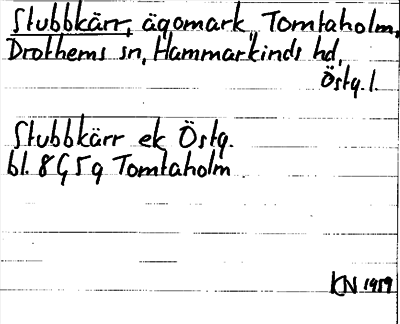 Stubbkärr, ägomark, Tomtaholm,
Drothems sn, Hammarkinds hd,
Östg. l.
Stubbkärr ek Östg.
bl. 8G5g Tomtaholm
KN 1959